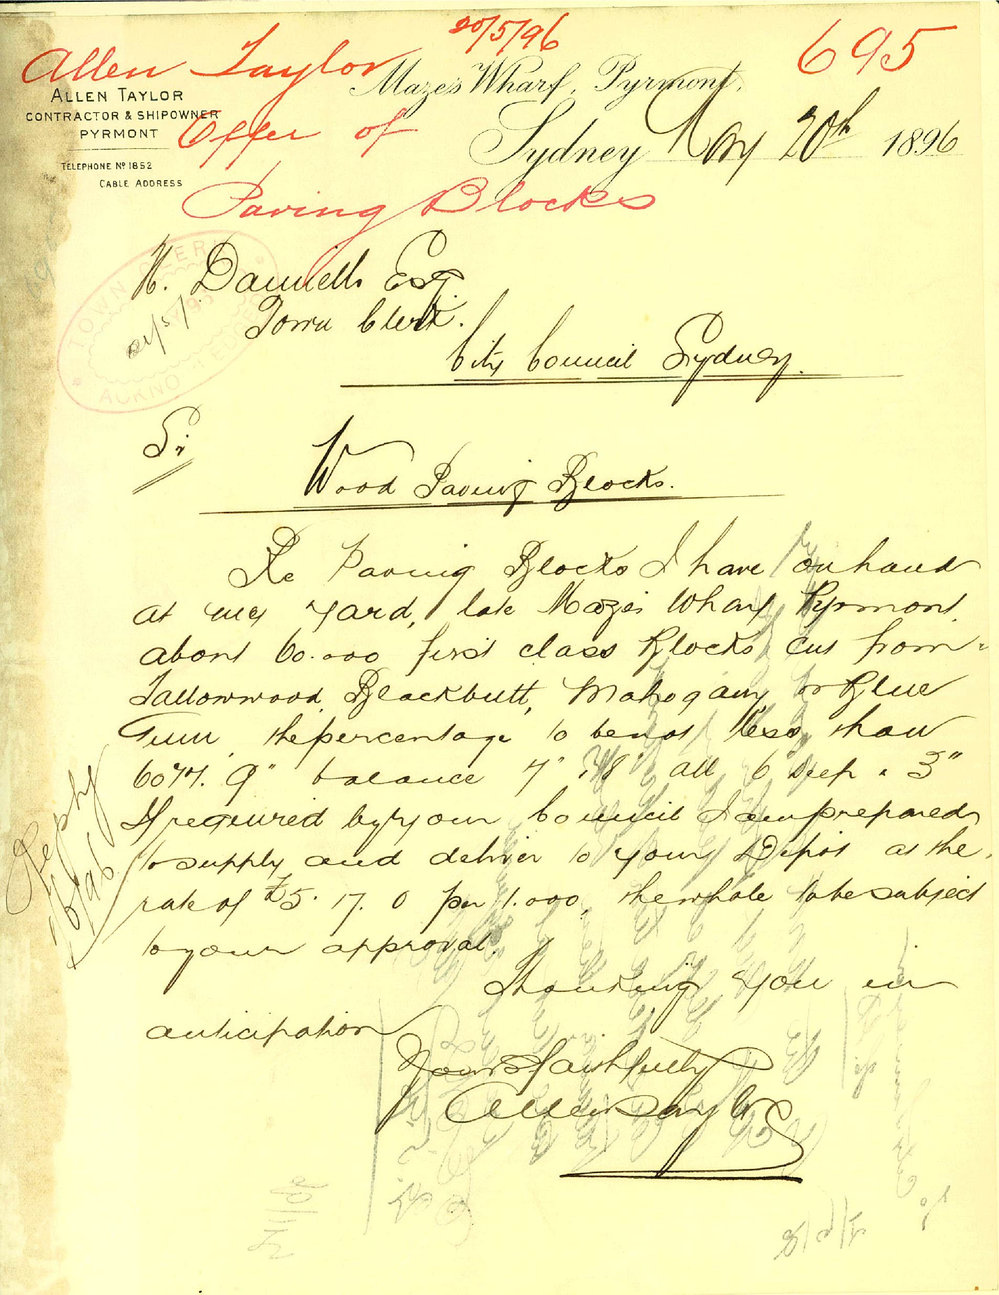 20/5/96
695
Allen Taylor
Offer of
Paving Blocks
ALLEN TAYLOR
CONTRACTOR & SHIPOWNER
PYRMONT
TELEPHONE No 1852
CABLE ADDRESS
Maze's Wharf, Pyrmont,
Sydney May 20th 1896
TOWN CLERK
ACKNOWLEDGED
H. Daniells Esq.
Town Clerk.
City Council Sydney.
Sir
Wood Paving Blocks.
Re Paving Blocks I have on hand
at my yard, late Mazes Wharf Pyrmont,
about 60.000 first class Blocks cut from
Tallowwood, Blackbutt, Mahogany or Blue
Gum, the percentage to be not less than
60%. 9" balance 7" & 8" all 6 deep x 3"
If required by your Council I am prepared
to supply and deliver to your Depot at the
rate of £5. 17. 0 per 1.000, the whole to be subject
to your approval.
Thanking you in
anticipation
Yours faithfully
Allen Taylor
Reply